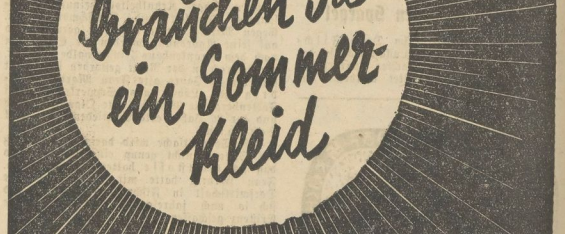 brauchen Sie
ein Sommer-
Kleid